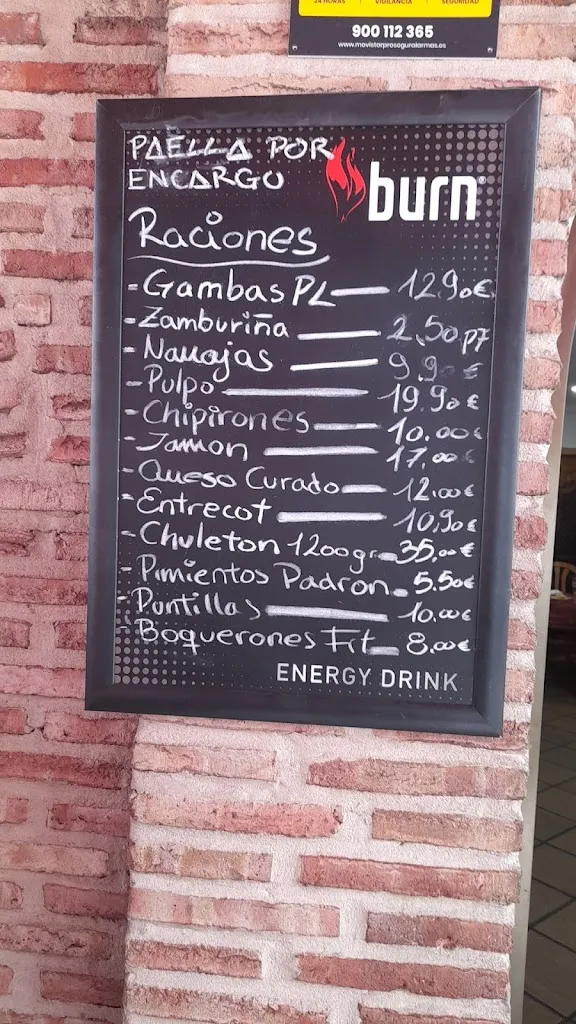 24 HORAS VIGILANCIA SEGURIDAD
900 112 365
www.movistarproseguralarmas.es
PAELLA POR
ENCARGO
burn
Raciones
-Gambas PL — 12.90€
-Zamburiña — 2,50 p7
-Navajas — 9.90 €
-Pulpo — 19.90 €
-Chipirones — 10.00€
-Jamon — 17,00€
-Queso Curado — 12,00€
-Entrecot — 10,90€
-Chuleton 1200gr — 35,00€
-Pimientos Padron - 5.50€
-Puntillas — 10.00€
-Boquerones Fit — 8.00€
ENERGY DRINK